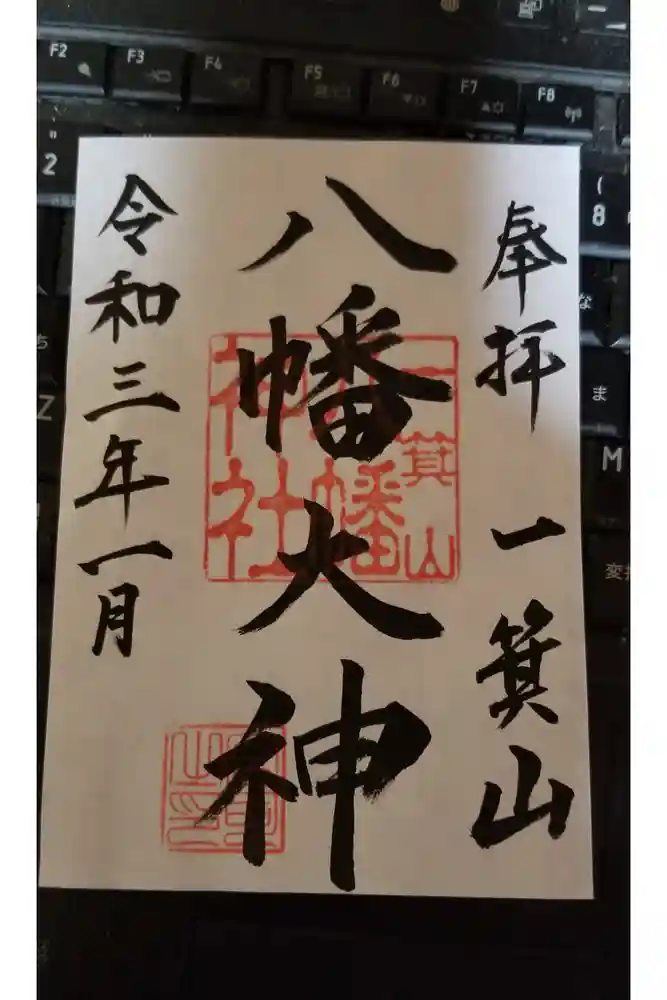 奉拝 一箕山
八幡大神
令和三年一月
一箕山
八幡
神社
F2
F3
F4
F5
F6
F7
F8
"
2
(
8
な
ち
Z
ま
M